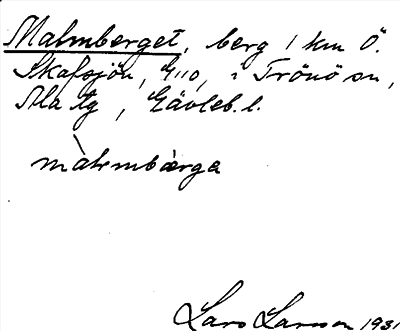 Malmberget, berg 1 km Ö.
Skafsjön, G110, i Trönö sn,
Ala tg, Gävleb. l.
màlmbàrga
Lars Larsson 1931